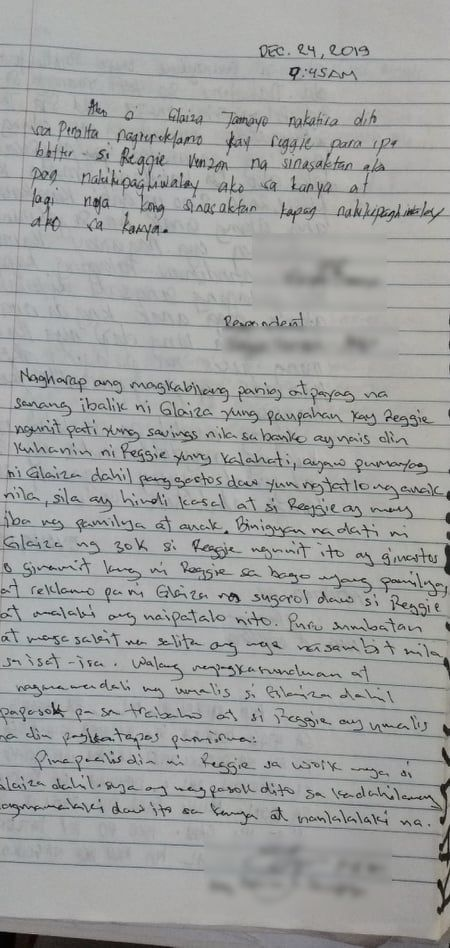 DEC. 24, 2019
9:45AM
Ako si Glaiza Tamayo nakatira dito
sa Peralta nagrereklamo kay reggie para ipa
blotter - si Reggie Venzon na sinasaktan ako
pag nakikipaghiwalay ako sa kanya at
lagi nya kong sinasaktan kapag nakikipaghiwalay
ako sa kanya.
Respondent:
Nagharap ang magkabilang panig at payag na
sanang ibalik ni Glaiza yung paupahan kay Reggie
ngunit pati yung savings nila sa banko ay nais din
kuhanin ni Reggie yung kalahati, ayaw pumayag
ni Glaiza dahil pang gastos daw yun ng tatlong anak
nila, sila ay hindi kasal at si Reggie ay may
iba ng pamilya at anak. Binigyan na dati ni
Glaiza ng 30k si Reggie ngunit ito ay ginastos
o ginamit lang ni Reggie sa bago niyang pamilya,
at reklamo pa ni Glaiza na sugarol daw si Reggie
at malaki ang naipatalo nito. Puro sumbatan
at masasakit na salita ang mga nasambit nila
sa isat-isa. Walang napagkasunduan at
nagmamadali ng umalis si Glaiza dahil
papasok pa sa trabaho at si Reggie ay umalis
na din pagkatapos pumirma.
Pinapaalis din ni Reggie sa work niya si
Glaiza dahil siya ang nagpasok dito sa kadahilanang
nagmamalaki daw ito sa kanya at nanlalalaki na.